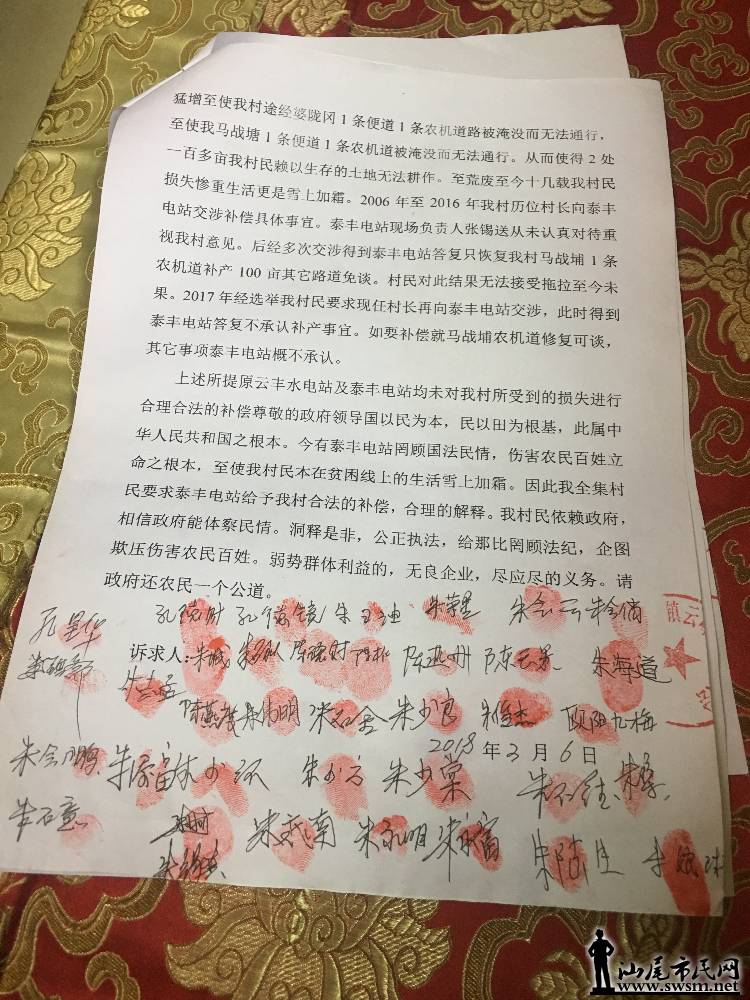 猛增至使我村途经婆陇冈1条便道1条农机道路被淹没而无法通行，
至使我马战塘1条便道1条农机道被淹没而无法通行。从而使得2处
一百多亩我村民赖以生存的土地无法耕作。至荒废至今十几载我村民
损失惨重生活更是雪上加霜。2006年至2016年我村历位村长向泰丰
电站交涉补偿具体事宜。泰丰电站现场负责人张锡送从未认真对待重
视我村意见。后经多次交涉得到泰丰电站答复只恢复我村马战埔1条
农机道补产100亩其它路道免谈。村民对此结果无法接受拖拉至今未
果。2017年经选举我村民要求现任村长再向泰丰电站交涉，此时得到
泰丰电站答复不承认补产事宜。如要补偿就马战埔农机道修复可谈，
其它事项泰丰电站概不承认。
上述所提原云丰水电站及泰丰电站均未对我村所受到的损失进行
合理合法的补偿尊敬的政府领导国以民为本，民以田为根基，此属中
华人民共和国之根本。今有泰丰电站罔顾国法民情，伤害农民百姓立
命之根本，至使我村民本在贫困线上的生活雪上加霜。因此我全集村
民要求泰丰电站给予我村合法的补偿，合理的解释。我村民依赖政府，
相信政府能体察民情。洞释是非，公正执法，给那比罔顾法纪，企图
欺压伤害农民百姓。弱势群体利益的，无良企业，尽应尽的义务。请
政府还农民一个公道。
朱荣星
镇云
诉求人： 朱海道
朱伟明 朱少良 朱俊杰 欧阳九梅
2018年3月6日
朱少方 朱少棠
朱石意
朱永明 朱永富
汕尾市民网
www.swsm.net